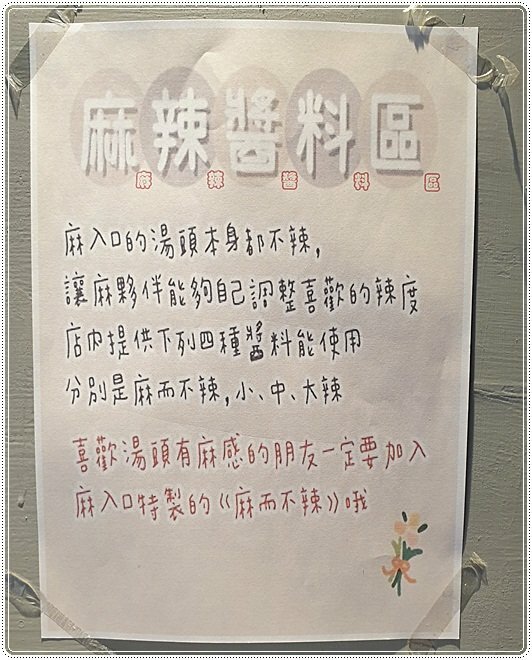 麻辣醬料區
麻辣醬料區
麻入口的湯頭本身都不辣,
讓麻夥伴能夠自己調整喜歡的辣度
店內提供下列四種醬料能使用
分別是麻而不辣,小、中、大辣
喜歡湯頭有麻感的朋友一定要加入
麻入口特製的《麻而不辣》哦